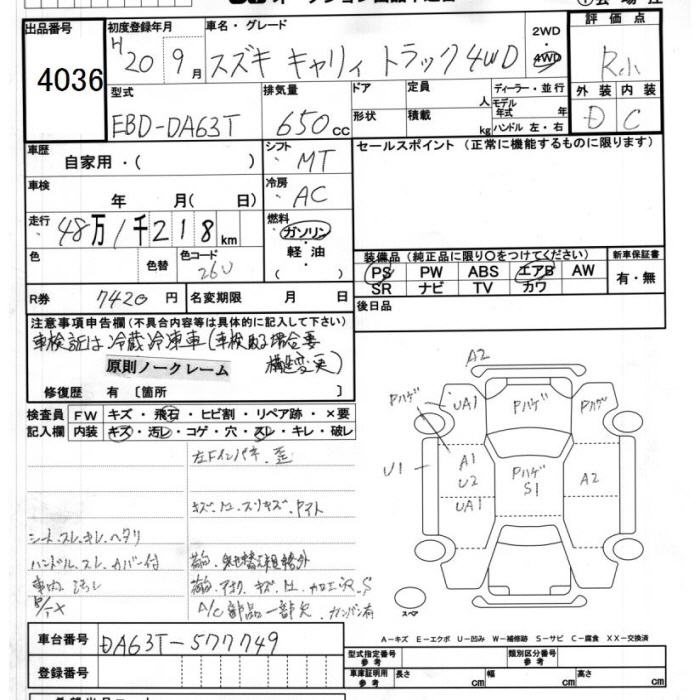 出品番号
4036
初度登録年月
H 20 9月
車名・グレード
スズキ キャリィ トラック 4WD
2WD
4WD
評価点
R小
型式
EBD-DA63T
排気量
650cc
ドア
形状
定員
人
積載
kg
ディーラー・並行
モデル年式
年
ハンドル 左・右
外装 内装
D C
車歴
自家用・( )
シフト
MT
セールスポイント (正常に機能するものに限ります)
車検
年 月( 日)
冷房
AC
走行
48万1千218km
燃料
ガソリン
軽油
( )
色
色替
色コード
26U
装備品 (純正品に限り〇をつけてください)
PS PW ABS エアB AW
SR ナビ TV カワ
新車保証書
有・無
R券
7420円
名変期限 月 日
後日品
注意事項申告欄 (不具合内容等は具体的に記入して下さい)
車検証は冷蔵冷凍車(車検取る場合要
構造変更)
原則ノークレーム
修復歴 有 〔箇所 〕
検査員記入欄
FW キズ・飛石・ヒビ割・リペア跡・×要
内装 キズ・汚レ・コゲ・穴・スレ・キレ・破レ
左Fインパネ、歪
シート、スレ、キレ、ヘタリ
ハンドル、スレ、カバー付
車内 汚レ
A/C 部品一部欠 カンバン有
A2
Pハゲ
UA1
Pハゲ
Pハゲ
U1
A1
U2
UA1
Pハゲ
S1
A2
スペア
A-キズ E-エクボ U-凹み W-補修跡 S-サビ C-腐食 XX-交換済
車台番号
DA63T-577749
登録番号
型式指定番号
参考
類別区分番号
参考
車庫証明用
参考
長さ cm 幅 cm 高さ cm